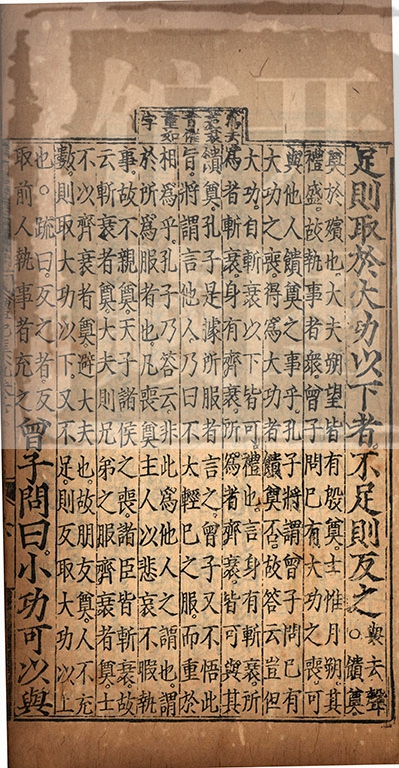 足則取於大功以下者不足則反之
與去聲
○饋奠
奠於殯也。大夫朔望皆有殷奠。士惟月朔其
禮盛。故執事者衆。曾子問已有大功之喪可
與他人饋奠之事乎。孔子將謂曾子問已有
大功之喪。得爲大功者饋奠否。故答云豈但
大功。自斬衰以下皆可。禮也。言身有斬衰所
爲者斬衰。身有齊衰。所爲者齊衰。皆可與其
饋奠。孔子是據所服者言之。曾子又不悟此
旨。將謂言他人。乃曰不大輕已之服。而重於
相爲乎。孔子乃答云。非此爲他人之謂也。謂
於所爲服者也。凡喪奠主人以悲哀不暇執
事。故不親奠。天子諸侯之喪。諸臣皆斬衰。故
云斬衰者奠。大夫則兄弟之服齊衰者奠。士
不以齊衰者奠。避大夫也。故朋友奠。人不充
數。則取大功以下。又不足。則反取大功以上
也。疏曰。反之者。反
取前人執事者充之。
曾子問曰。小功可以與
如
字